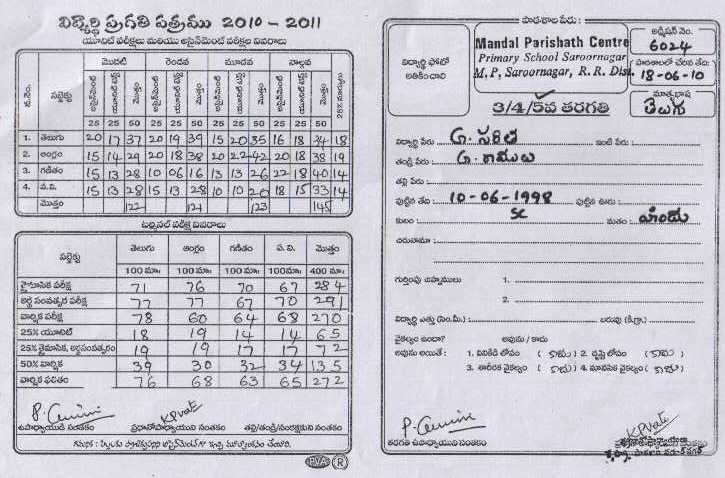 విద్యార్థి ప్రగతి పత్రము 2010 - 2011
యూనిట్ పరీక్షలు మరియు అసైన్‌మెంట్ పరీక్షల వివరాలు
స.నెం. సబ్జెక్టు మొదటి రెండవ మూడవ నాల్గవ 25% మార్కులు
అసైన్‌మెంట్ యూనిట్ టెస్ట్ మొత్తం అసైన్‌మెంట్ యూనిట్ టెస్ట్ మొత్తం అసైన్‌మెంట్ యూనిట్ టెస్ట్ మొత్తం అసైన్‌మెంట్ యూనిట్ టెస్ట్ మొత్తం
25 25 50 25 25 50 25 25 50 25 25 50
1. తెలుగు 20 17 37 20 19 39 15 20 35 16 18 34 18
2. ఆంగ్లం 15 14 29 20 18 38 20 22 42 20 18 38 19
3. గణితం 15 13 28 10 06 16 13 13 26 22 18 40 14
4. ప.వి. 15 13 28 15 13 28 10 10 20 18 15 33 14
మొత్తం 122 121 123 145
టర్మినల్ పరీక్ష వివరాలు
సబ్జెక్టు తెలుగు ఆంగ్లం గణితం ప.వి. మొత్తం
100 మా. 100 మా. 100 మా. 100 మా. 400 మా.
త్రైమాసిక పరీక్ష 71 76 70 67 284
అర్ధ సంవత్సర పరీక్ష 77 77 67 70 291
వార్షిక పరీక్ష 78 60 64 68 270
25% యూనిట్ 18 19 14 14 65
25% త్రైమాసిక, అర్ధసంవత్సరం 19 19 17 17 72
50% వార్షిక 39 30 32 34 135
వార్షిక ఫలితం 76 68 63 65 272
ఉపాధ్యాయుడి సంతకం ప్రధానోపాధ్యాయుని సంతకం తల్లి/తండ్రి/సంరక్షకుని సంతకం
RVA R
పాఠశాల పేరు:
Mandal Parishath Centre
Primary School Saroornagar
M.P, Saroornagar, R.R. Dist.
విద్యార్థి ఫోటో
అతికించాలి
అడ్మిషన్ నెం.
6024
పాఠశాలలో చేరిన తేది:
18-06-10
మాతృభాష
తెలుగు
3/4/5వ తరగతి
విద్యార్థి పేరు : G. సరిత ఇంటి పేరు:
తండ్రి పేరు: G. రాములు
తల్లి పేరు:
పుట్టిన తేది: 10-06-1998 పుట్టిన ఊరు:
కులం SC మతం: హిందు
చిరునామా :
గుర్తింపు చిహ్నాలు 1.
2.
విద్యార్థి ఎత్తు (సెం.మీ.) : బరువు (కి.గ్రా.)
వైకల్యం ఉందా? అవును / కాదు
అవును అయితే : 1. వినికిడి లోపం ( కాదు ) 2. దృష్టి లోపం ( కాదు )
3. శారీరక వైకల్యం ( కాదు ) 4. మానసిక వైకల్యం ( కాదు )
తరగతి ఉపాధ్యాయుని సంతకం